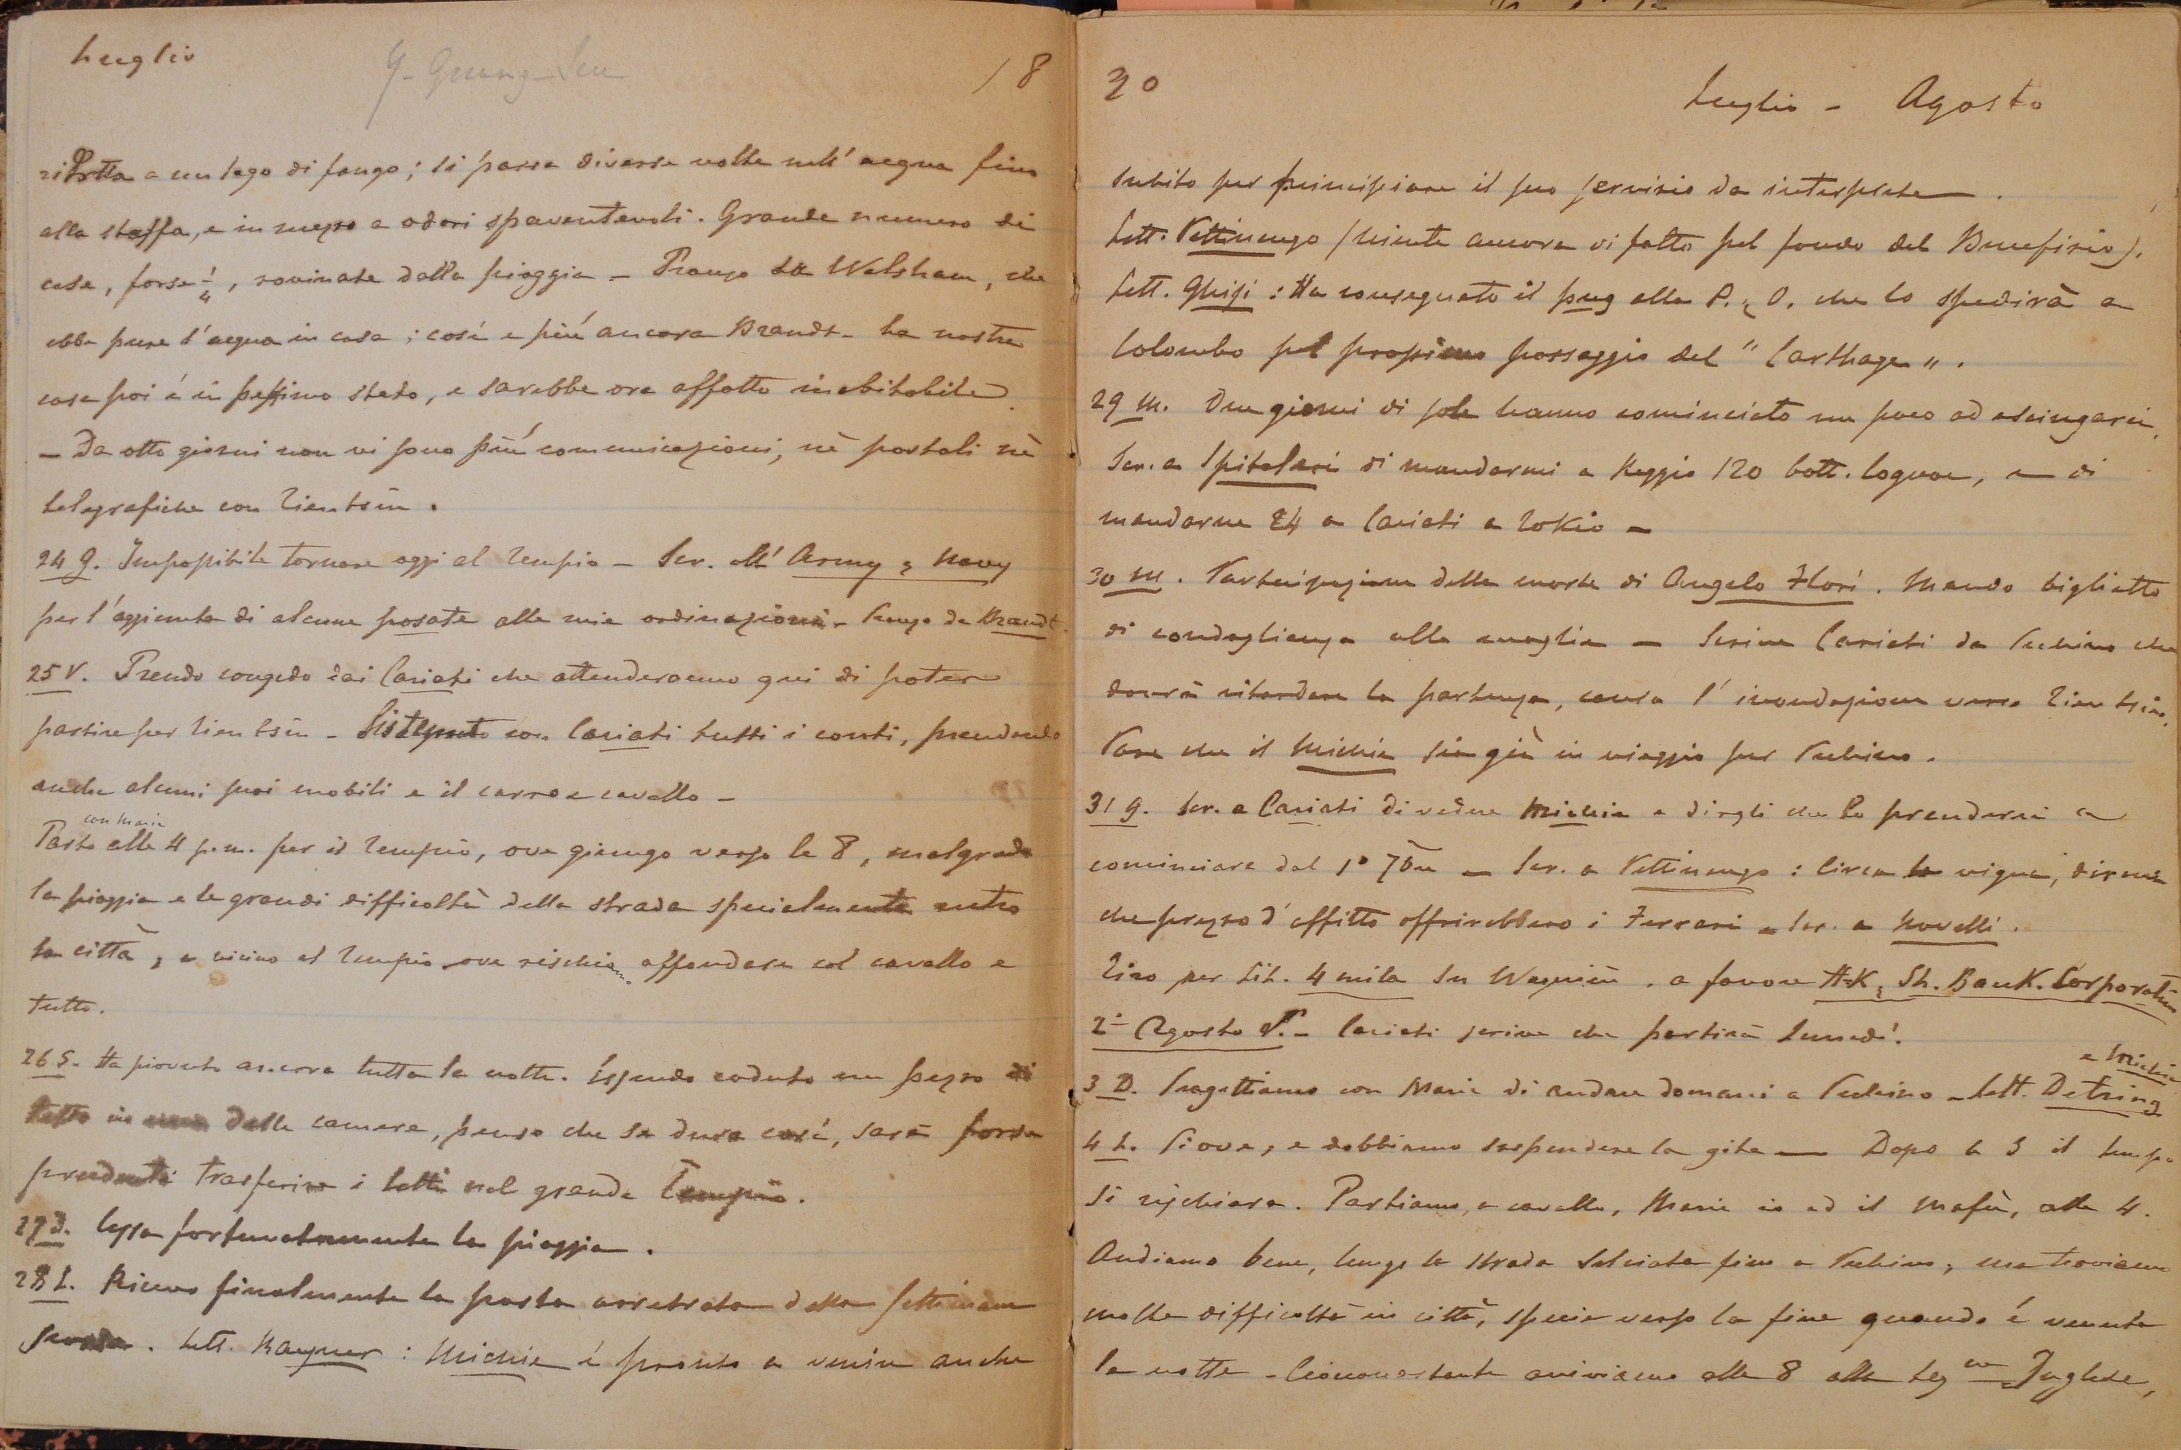 Luglio
18
ridotta a un lago di fango; si passa diverse volte nell'acqua fino
alla staffa, e in mezzo a odori spaventevoli. Grande numero di
case, forse 1/4, rovinate dalla pioggia – Pranzo da Walsham, che
ebbe pure l'acqua in casa; così e più ancora Brandt – La nostra
casa poi è in pessimo stato, e sarebbe ora affatto inabitabile
– Da otto giorni non vi sono più comunicazioni, nè postali nè
telegrafiche con Tientsin.
24 G. Impossibile tornare oggi al Tempio – Scr. all'Army & Navy
per l'aggiunta di alcune posate alle mie ordinazioni – Pranzo da Brandt.
25 V. Prendo congedo dai Cariati che attenderanno qui di poter
partire per Tientsin – con Cariati tutti i conti, prendendo
anche alcuni suoi mobili e il carro e cavallo –
con Marie
Parto alle 4 p.m. per il Tempio, ove giungo verso le 8, malgrado
la pioggia e le grandi difficoltà della strada specialmente entro
la città, e vicino al Tempio ove rischiamo affondare col cavallo e
tutto.
26 S. Ha piovuto ancora tutta la notte. Essendo caduto un pezzo di
tetto in una delle camere, penso che se dura così, sarà forse
prudente trasferire i letti nel grande Tempio.
27 D. Cessa fortunatamente la pioggia.
28 L. Ricevo finalmente la posta arretrata della settimana
scorsa. Lett. Rayner: Michie è pronto a venire anche
30
Luglio – Agosto
subito per principiare il suo servizio da interprete.
Lett. Pettinengo (niente ancora di fatto pel fondo del Benefizio).
Lett. Ghisi: Ha consegnato il pug alla P. & O. che lo spedirà a
Colombo pel prossimo passaggio del "Carthage".
29 M. Due giorni di sole hanno cominciato un poco ad asciugarci.
Scr. a Spitaleri di mandarmi a Reggio 120 bott. Cognac, e di
mandarne 24 a Cariati a Tokio –
30 M. Partecipazione della morte di Angelo Flori. Mando biglietto
di condoglianza alla moglie – Scrive Cariati da Pechino che
dovrà ritardare la partenza, causa l'inondazione verso Tientsin.
Pare che il Michie sia già in viaggio per Pechino.
31 G. Scr. a Cariati di vedere Michie e dirgli che lo prenderei a
cominciare dal 1° 7bre – Scr. a Pettinengo: Circa le vigne, dirmi
che prezzo d'affitto offrirebbero i Ferrari – Scr. a Novelli.
Tiro per Lit. 4 mila su Wagnière. a favore H.K. & Sh. Bank. Corporation
2 Agosto – Cariati scrive che partirà Lunedì.
e Michie
3 D. Progettiamo con Marie di andare domani a Pechino – Lett. Detring
4 L. Piove, e dobbiamo sospendere la gita — Dopo le 3 il tempo
si rischiara. Partiamo, a cavallo, Marie io ed il Mafù, alle 4.
Andiamo bene, lungo la strada selciata fino a Pechino, ma troviamo
molte difficoltà in città, specie verso la fine quando è venuta
la notte – Ciononostante arriviamo alle 8 alla Leg.ne Inglese,